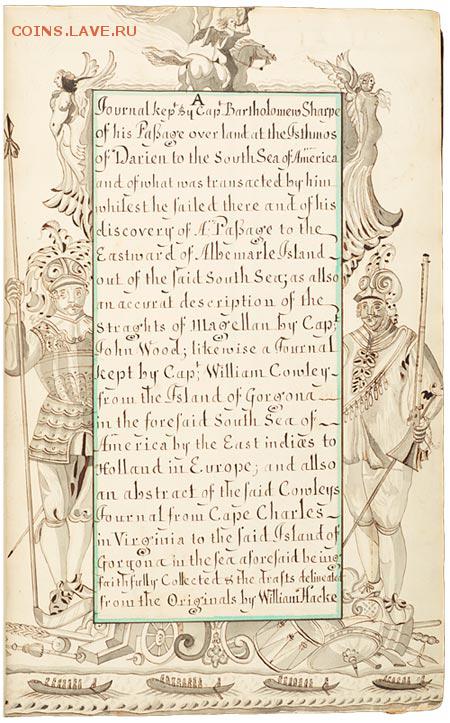 COINS.LAVE.RU
A
Journal kept by Capt Bartholomew Sharpe
of his Paßage over land at the Isthmos
of Darien to the South Sea of America
and of what was transacted by him
whilest he sailed there and of his
discovery of A Paßage to the
Eastward of Albemarle Island
out of the said South Sea; as also
an accurat description of the
Straghts of Magellan by Capt
John Wood; likewise a Journal
kept by Capt William Cowley
from the Island of Gorgona
in the foresaid South Sea of
America by the East indies to
Holland in Europe; and allso
an abstract of the said Cowleys
Journal from Cape Charles
in Virginia to the said Island of
Gorgona in the sea aforesaid being
faithfully Collected & the drafts delineated
from the Originals by William Hacke